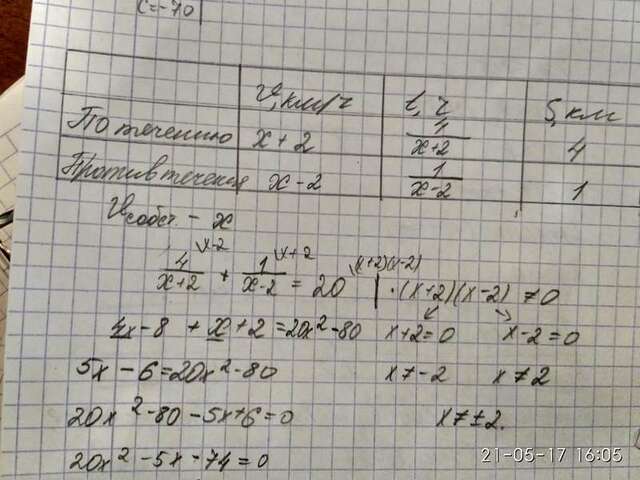 C=-70
V, км/ч t, ч S, км
По течению x+2 4/(x+2) 4
Против течения x-2 1/(x-2) 1
Vсобст. - x
4/(x+2) \x-2 + 1/(x-2) \x+2 = 20 \(x+2)(x-2) | ·(x+2)(x-2) ≠0
4x-8 + x+2 =20x²-80 x+2=0 x-2=0
5x-6=20x²-80 x≠-2 x≠2
20x²-80-5x+6=0 x≠±2.
20x²-5x-74=0
21-05-17 16:05